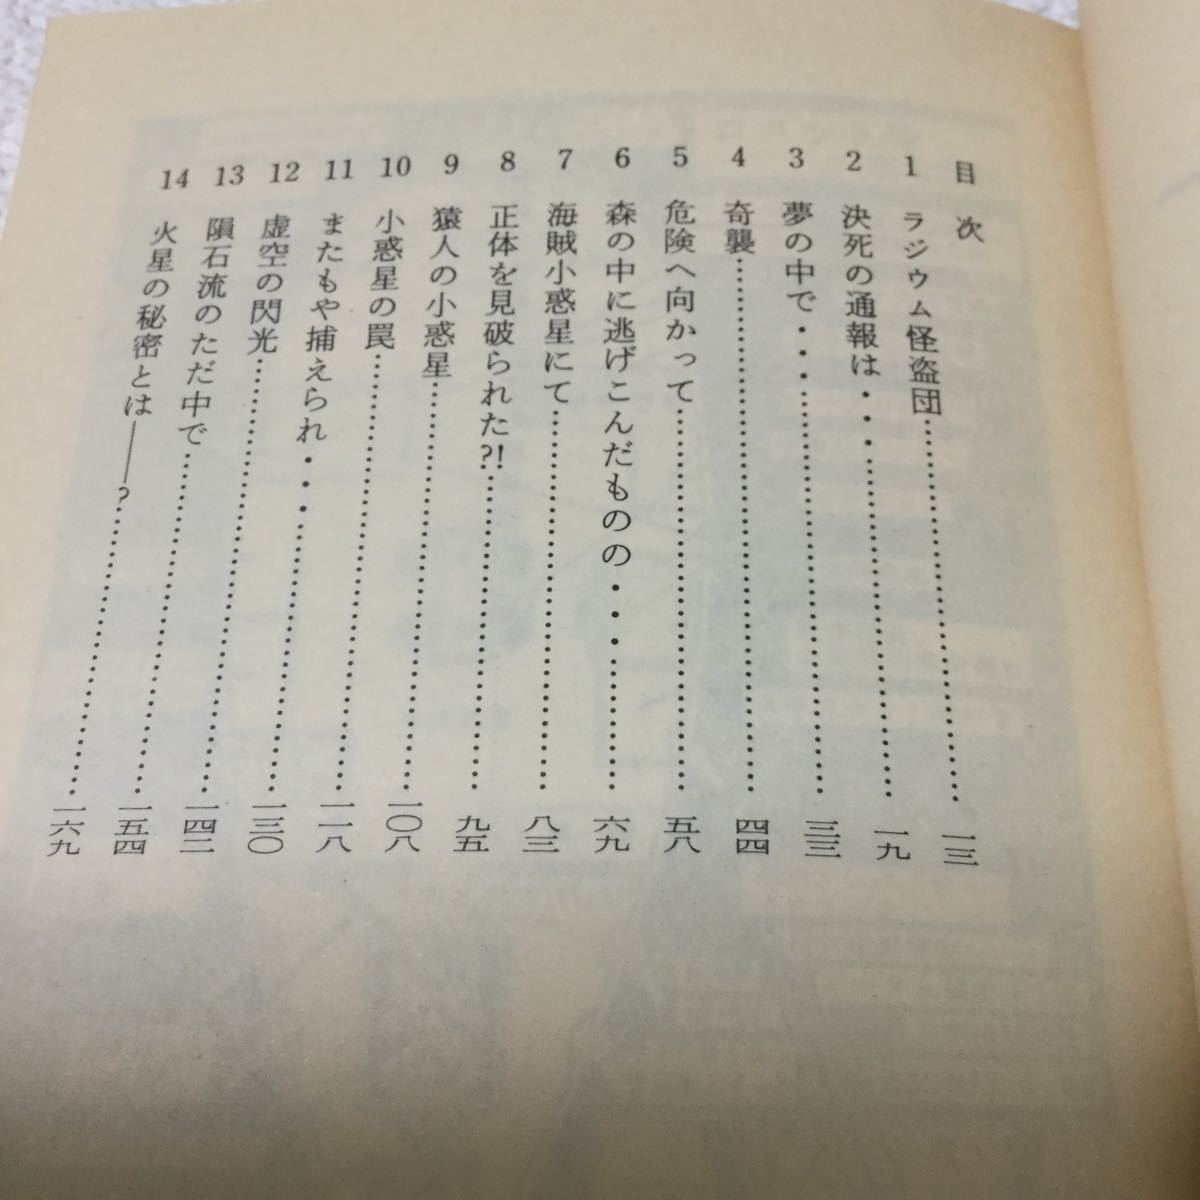 目次
1 ラジウム怪盗団……………………一三
2 決死の通報は・・・……………………一九
3 夢の中で・・・……………………三三
4 奇襲……………………四四
5 危険へ向かって……………………五八
6 森の中に逃げこんだものの・・・……………………六九
7 海賊小惑星にて……………………八三
8 正体を見破られた?!……………………九五
9 猿人の小惑星……………………一〇八
10 小惑星の罠……………………一一八
11 またもや捕えられ・・・……………………一三〇
12 虚空の閃光……………………一四二
13 隕石流のただ中で……………………一五四
14 火星の秘密とは――?……………………一六九